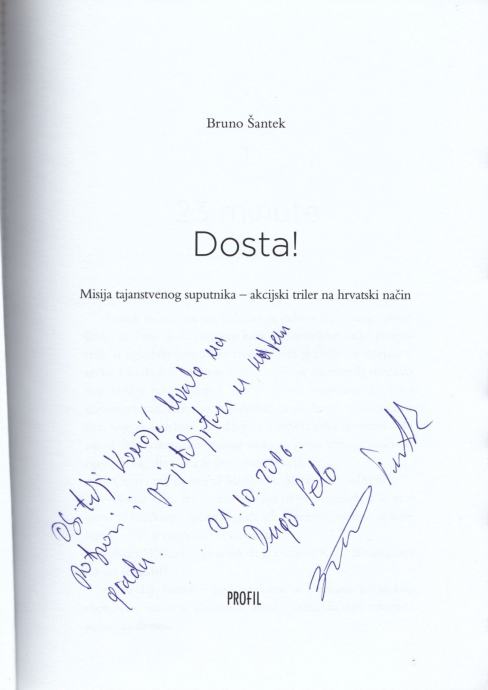 Bruno Šantek
Dosta!
Misija tajanstvenog suputnika – akcijski triler na hrvatski način
Obitelji hvala na
potpori i prijateljstvu u našem
gradu.
21.10.2016.
Dugo Selo
PROFIL